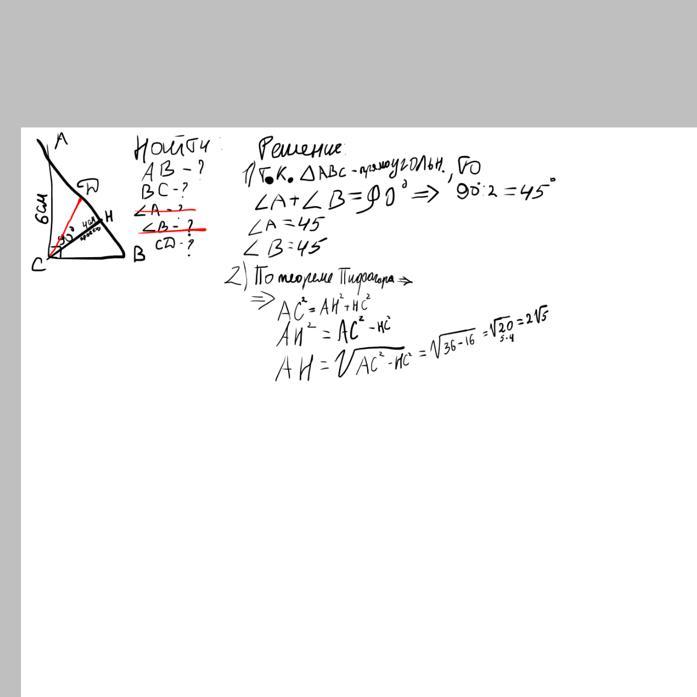 A
D
6см
H
4см
90°
C
B
Найти:
AB - ?
BC - ?
∠A - ?
∠B - ?
CD - ?
Решение:
1) Т.К. △ABC - прямоугольн., то
∠A + ∠B = 90° ⇒ 90:2 = 45°
∠A = 45
∠B = 45
2) По теореме Пифагора ⇒
⇒ AC² = AH² + HC²
AH² = AC² - HC²
AH = √AC² - HC² = √36-16 = √20 = 2√5
5·4